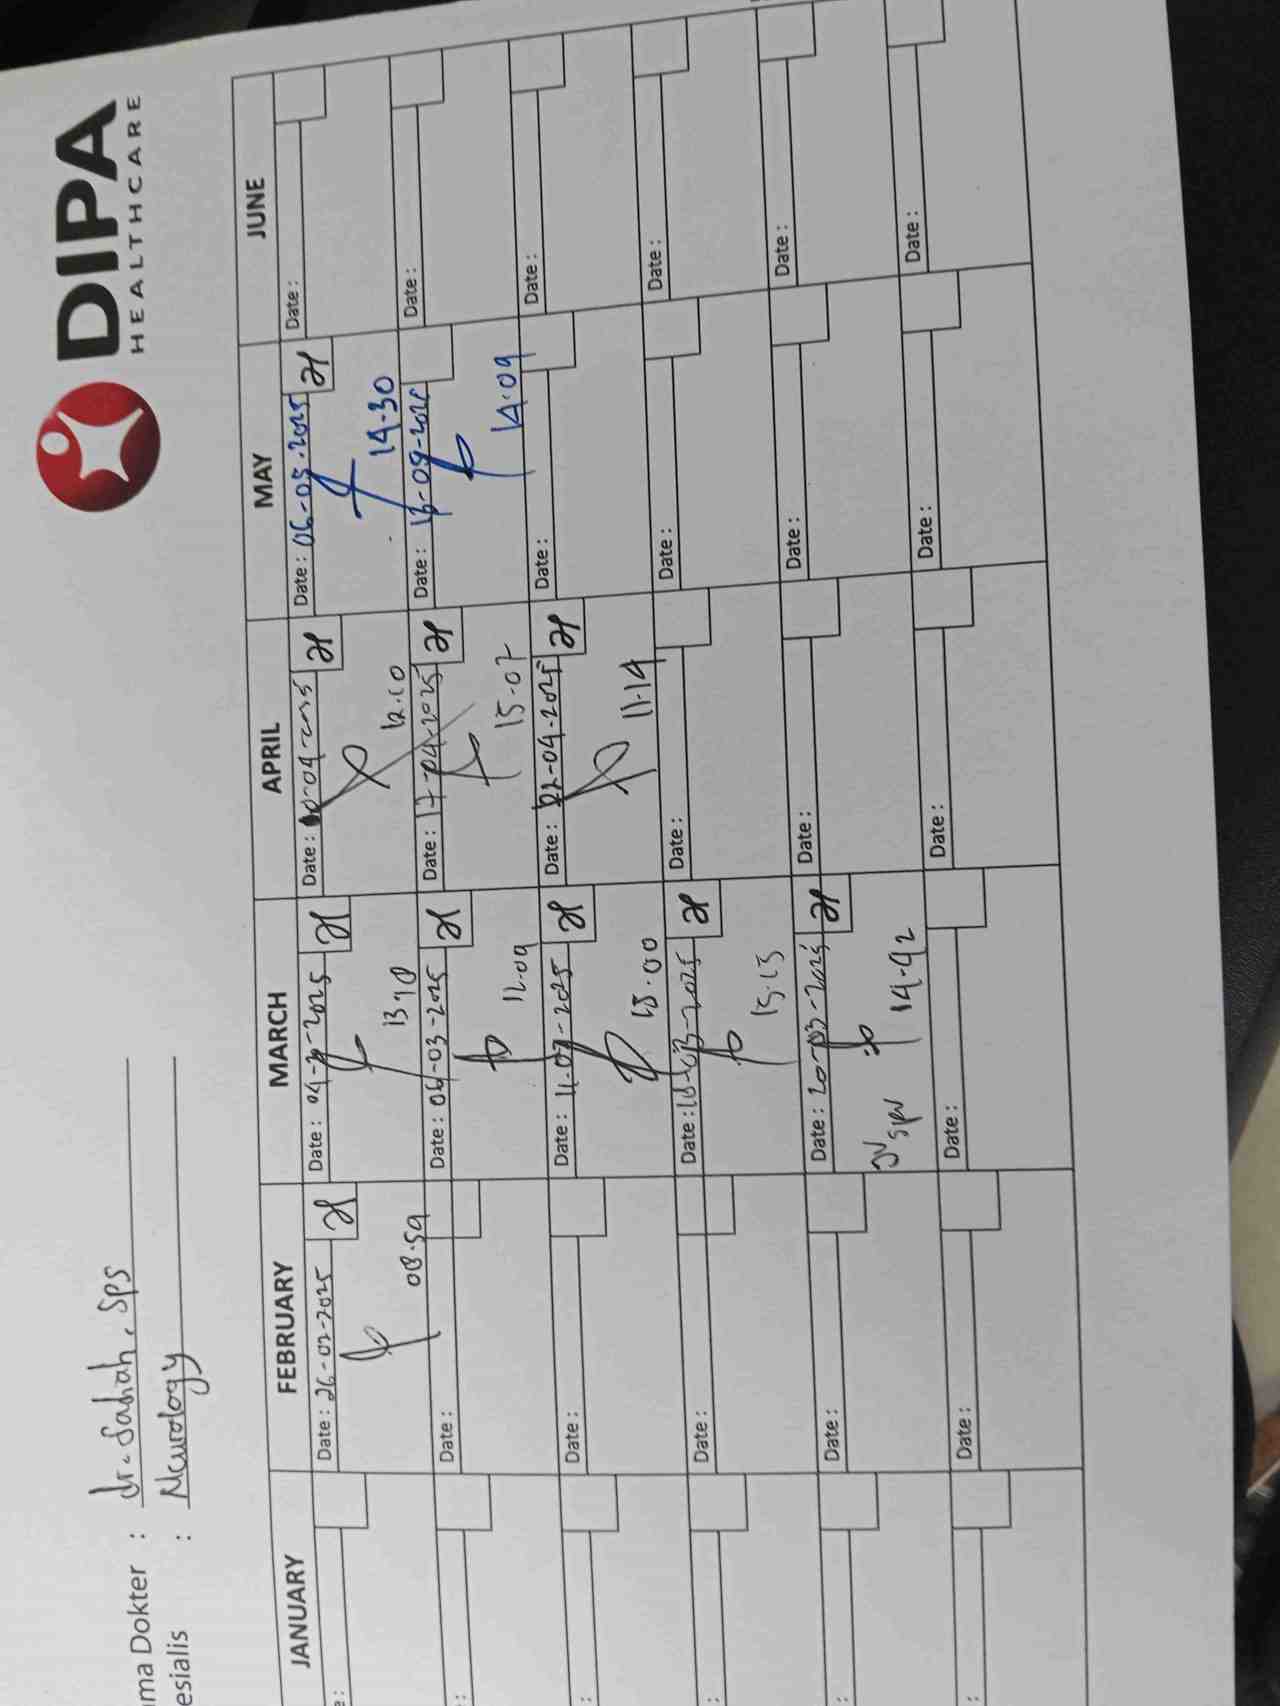 DIPA
HEALTHCARE
ma Dokter : dr. Sahiah, SpS
esialis : Neurology
JANUARY FEBRUARY MARCH APRIL MAY JUNE
e: Date: 26-02-2025 Date: 04-3-2025 Date: 04-2025 Date: 06-05-2025 Date:
08.59 13.10 12.10 14.30
: Date: Date: 06-03-2025 Date: 17-04-2025 Date: Date:
12.09 15.07 14.09
: Date: Date: 11-03-2025 Date: 22-04-2025 Date: Date:
15.00 11.14
: Date: Date: 18-03-2025 Date: Date: Date:
15.13
: Date: Date: 20-03-2025 Date: Date: Date:
JV SPV 14.42
: Date: Date: Date: Date: Date: